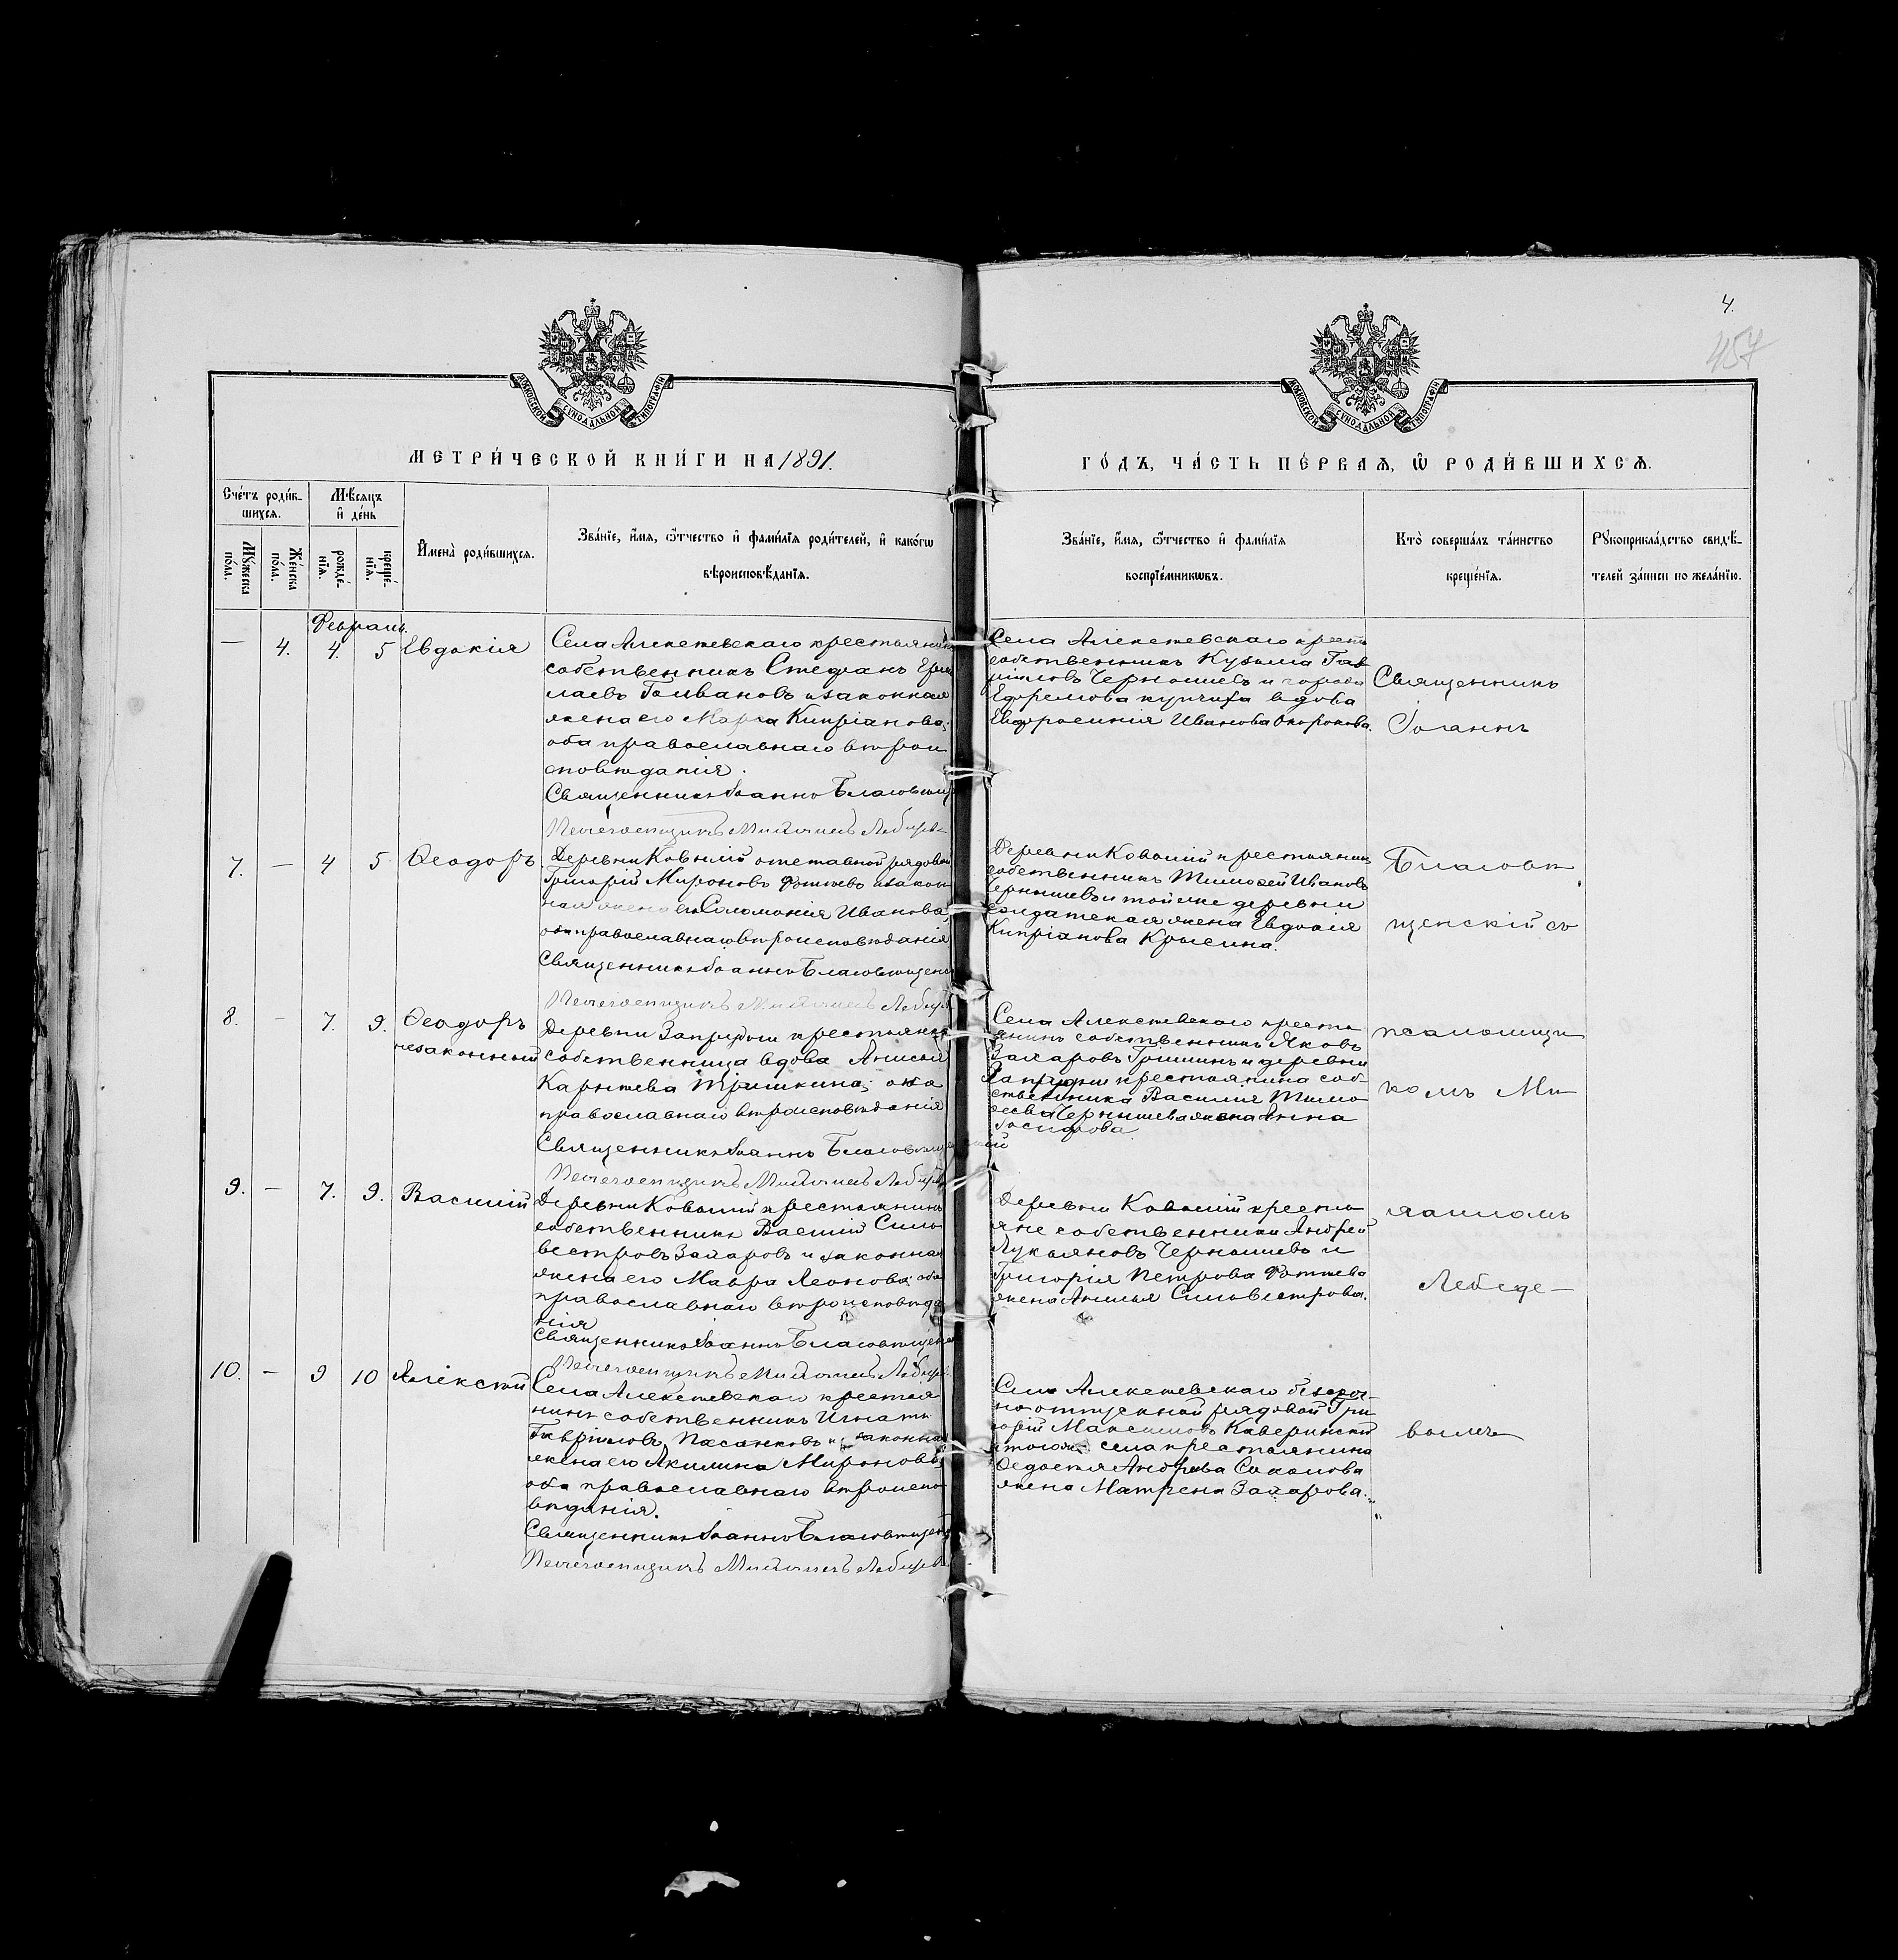 4.
457
МОСКОВСКОЙ СУНОДАЛЬНОЙ ТИПОГРАФІИ
МОСКОВСКОЙ СУНОДАЛЬНОЙ ТИПОГРАФІИ
МЕТРИ́ЧЕСКОЙ КНИ́ГИ НА 1891.
ГО́ДЪ, ЧА́СТЬ ПЕ́РВАѦ, Ѡ РОДИ́ВШИХСѦ.
Сче́тъ роди́в-
шихсѧ.
Мѣ́сѧцъ
и҆ де́нь
Мꙋ́жеска
по́ла.
Же́нска
по́ла.
рожде́-
нїѧ.
креще́-
нїѧ.
И҆мена̀ роди́вшихсѧ.
Зва́нїе, и҆́мѧ, ѻ҆́тчество и҆ фами́лїѧ роди́телей, и҆ како́гѡ
вѣроисповѣ́данїѧ.
Зва́нїе, и҆́мѧ, ѻ҆́тчество и҆ фами́лїѧ
воспрїе́мникѡвъ.
Кто̀ соверша́лъ та́инство
креще́нїѧ.
Рꙋкоприкла́дство свидѣ́-
телей за́писи по жела́нїю.
Февраль.
— 4. 4. 5 Евдокія
Села Алексѣевскаго крестьянинъ
собственникъ Стефанъ
Голивановъ и законная
жена его Марѳа Кипріанова;
оба православнаго вѣрои
сповѣданія.
Священникъ Іоаннъ Благовѣщ
Псаломщикъ Михаилъ Лебедев
Села Алексѣевскаго крест
собственникъ Кузьма Гав
риловъ Чернышевъ и города
Ефремова купчиха вдова
Евфросинія Иванова Окорокова.
Священникъ
Іоаннъ
7. — 4 5 Ѳеодоръ
Деревни Ковылій отставной рядовой
Григорій Мироновъ Фотѣевъ и закон
ная жена его Соломонія Иванова;
оба православнаго вѣроисповѣданія
Священникъ Іоаннъ Благовѣщенс
Псаломщикъ Михаилъ Лебедев
Деревни Ковылій крестьянинъ
собственникъ Тимоѳей Ивановъ
Чернышевъ и той же деревни
солдатская жена Евдокія
Кипріанова Крысина.
Благовѣ
щенскій съ
8. — 7. 9. Ѳеодоръ
незаконный
Деревни Запрудни крестьянка
собственница вдова Анисья
Карнѣева Тришкина; она
православнаго вѣроисповѣданія
Священникъ Іоаннъ Благовѣщенскій
Псаломщикъ Михаилъ Лебедев
Села Алексѣевскаго кресть
янинъ собственникъ Яковъ
Захаровъ Гришинъ и деревни
Запрудни крестьянина соб-
ственника Василія Тимо
ѳеева Чернышева жена Анна
Іосифова.
псаломщи
комъ Ми
9. — 7. 9. Василій
Деревни Ковылій крестьянинъ
собственникъ Василій Силь
вестровъ Захаровъ и законная
жена его Мавра Леонова; оба
православнаго вѣроисповѣда
нія
Священникъ Іоаннъ Благовѣщен
Псаломщикъ Михаилъ Лебедев
Деревни Ковылій кресть
яне собственники Андрей
Лукьяновъ Чернышевъ и
Григорія Петрова Фотѣева
жена Анисья Сильвестрова.
хаиломъ
Лебеде—
10. — 9 10 Алексѣй
Села Алексѣевскаго крестья
нинъ собственникъ Игнатій
Гавріиловъ Пасынковъ и законная
жена его Акилина Миронова;
оба православнаго вѣроиспо
вѣданія.
Священникъ Іоаннъ Благовѣщен
Псаломщикъ Михаилъ Лебедев
Села Алексѣевскаго безсроч-
но отпускной рядовой Гри
горій Максимовъ Каверинскій
и того же села крестьянина
Ѳедосѣя Андреева Соколова
жена Матрена Захарова.
вымъ